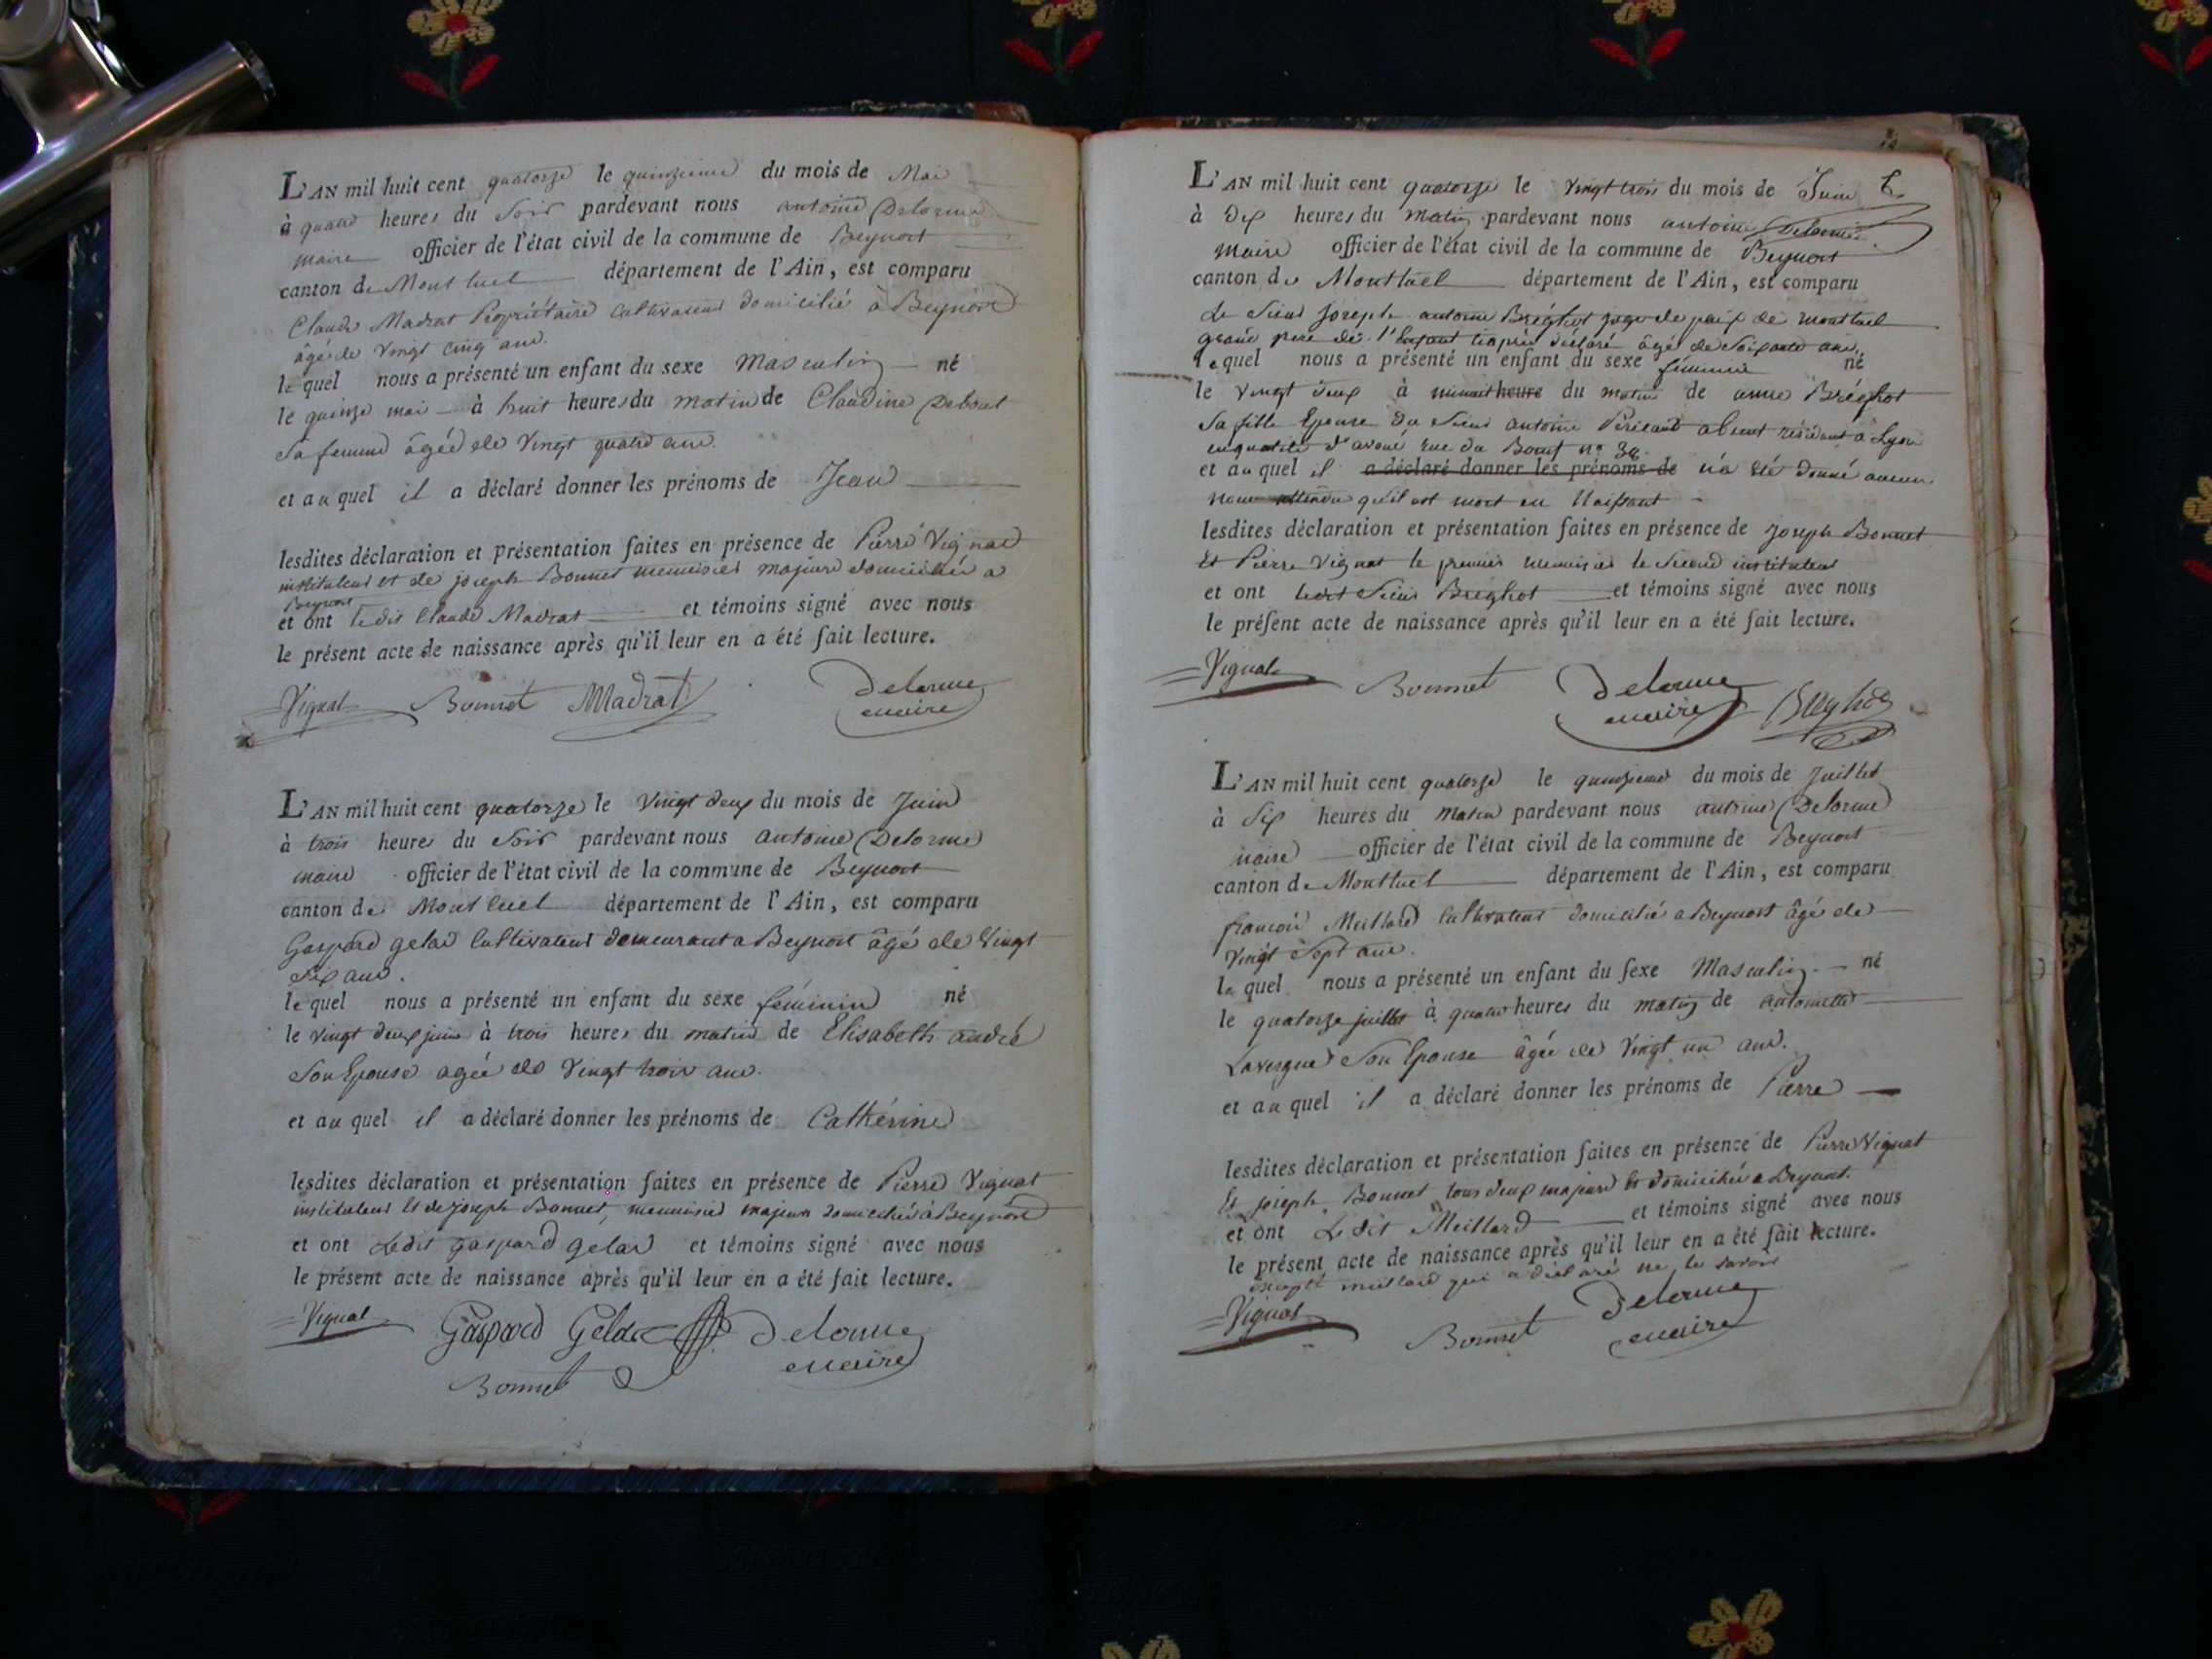 L'AN mil huit cent quatorze le quinzieme du mois de Mai
à quatre heures du Soir pardevant nous antoine Delorme
maire officier de l'état civil de la commune de Beynost
canton de Montluel département de l'Ain, est comparu
Claude Madrat Propriétaire Cultivateur domicilié à Beynost
âgé de Vingt cinq ans.
lequel nous a présenté un enfant du sexe Masculin né
le quinze mai à huit heures du matin de Claudine Debout
Sa femme âgée de Vingt quatre ans.
et auquel il a déclaré donner les prénoms de Jean
lesdites déclaration et présentation faites en présence de Pierre Vignat
instituteur et de joseph Bonnet menuisier majeurs domiciliés a
Beynost
et ont ledit Claude Madrat et témoins signé avec nous
le présent acte de naissance après qu'il leur en a été fait lecture.
Vignat Bonnet Madrat Delorme
maire
L'AN mil huit cent quatorze le Vingt deux du mois de Juin
à trois heures du Soir pardevant nous antoine Delorme
maire officier de l'état civil de la commune de Beynost
canton de Montluel département de l'Ain, est comparu
Gaspard gelas Cultivateur demeurant a Beynost âgé de Vingt
Six ans.
lequel nous a présenté un enfant du sexe féminin né
le vingt deux juin à trois heures du matin de Elisabeth andré
Son Epouse agée de Vingt trois ans.
et auquel il a déclaré donner les prénoms de Cathérine
lesdites déclaration et présentation faites en présence de Pierre Vignat
instituteur Et de joseph Bonnet, menuisier majeurs domiciliés à Beynost
et ont Ledit gaspard gelas et témoins signé avec nous
le présent acte de naissance après qu'il leur en a été fait lecture.
Vignat Gaspard Gelas Delorme
Bonnet maire
L'AN mil huit cent quatorze le Vingt trois du mois de Juin
à Dix heures du matin pardevant nous antoine Delorme
maire officier de l'état civil de la commune de Beynost
canton de Montluel département de l'Ain, est comparu
Le Sieur Joseph antoine Bréghot juge de paix de montluel
grand pere de l'Enfant ciaprès déclaré âgé de Soixante ans.
lequel nous a présenté un enfant du sexe féminin né
le vingt deux à minuit heure du matin de anne Bréghot
Sa fille Epouse du Sieur antoine Pericaud absent résidant à Lyon
enqualité d'avoué rue du Boeuf n° 38.
et auquel il a déclaré donner les prénoms de n'a été donné aucun
nom attendu qu'il est mort en Naissant
lesdites déclaration et présentation faites en présence de Joseph Bonnet
Et Pierre Vignat le premier menuisier le Second instituteur
et ont ledit Sieur Bréghot et témoins signé avec nous
le présent acte de naissance après qu'il leur en a été fait lecture.
Vignat Bonnet Delorme Breghot
maire
L'AN mil huit cent quatorze le quinzieme du mois de Juillet
à Six heures du Matin pardevant nous antoine Delorme
maire officier de l'état civil de la commune de Beynost
canton de Montluel département de l'Ain, est comparu
françois Meillard Cultivateur domicilié a Beynost âgé de
Vingt Sept ans.
lequel nous a présenté un enfant du sexe Masculin né
le quatorze juillet à quatre heures du matin de antoinette
Lavergne Son Epouse âgée de Vingt un ans.
et auquel il a déclaré donner les prénoms de Pierre
lesdites déclaration et présentation faites en présence de Pierre Vignat
Et joseph Bonnet tous deux majeurs et domiciliés a Beynost.
et ont Ledit Meillard et témoins signé avec nous
le présent acte de naissance après qu'il leur en a été fait lecture.
excepté meillard qui a déclaré ne le savoir
Vignat Bonnet Delorme
maire